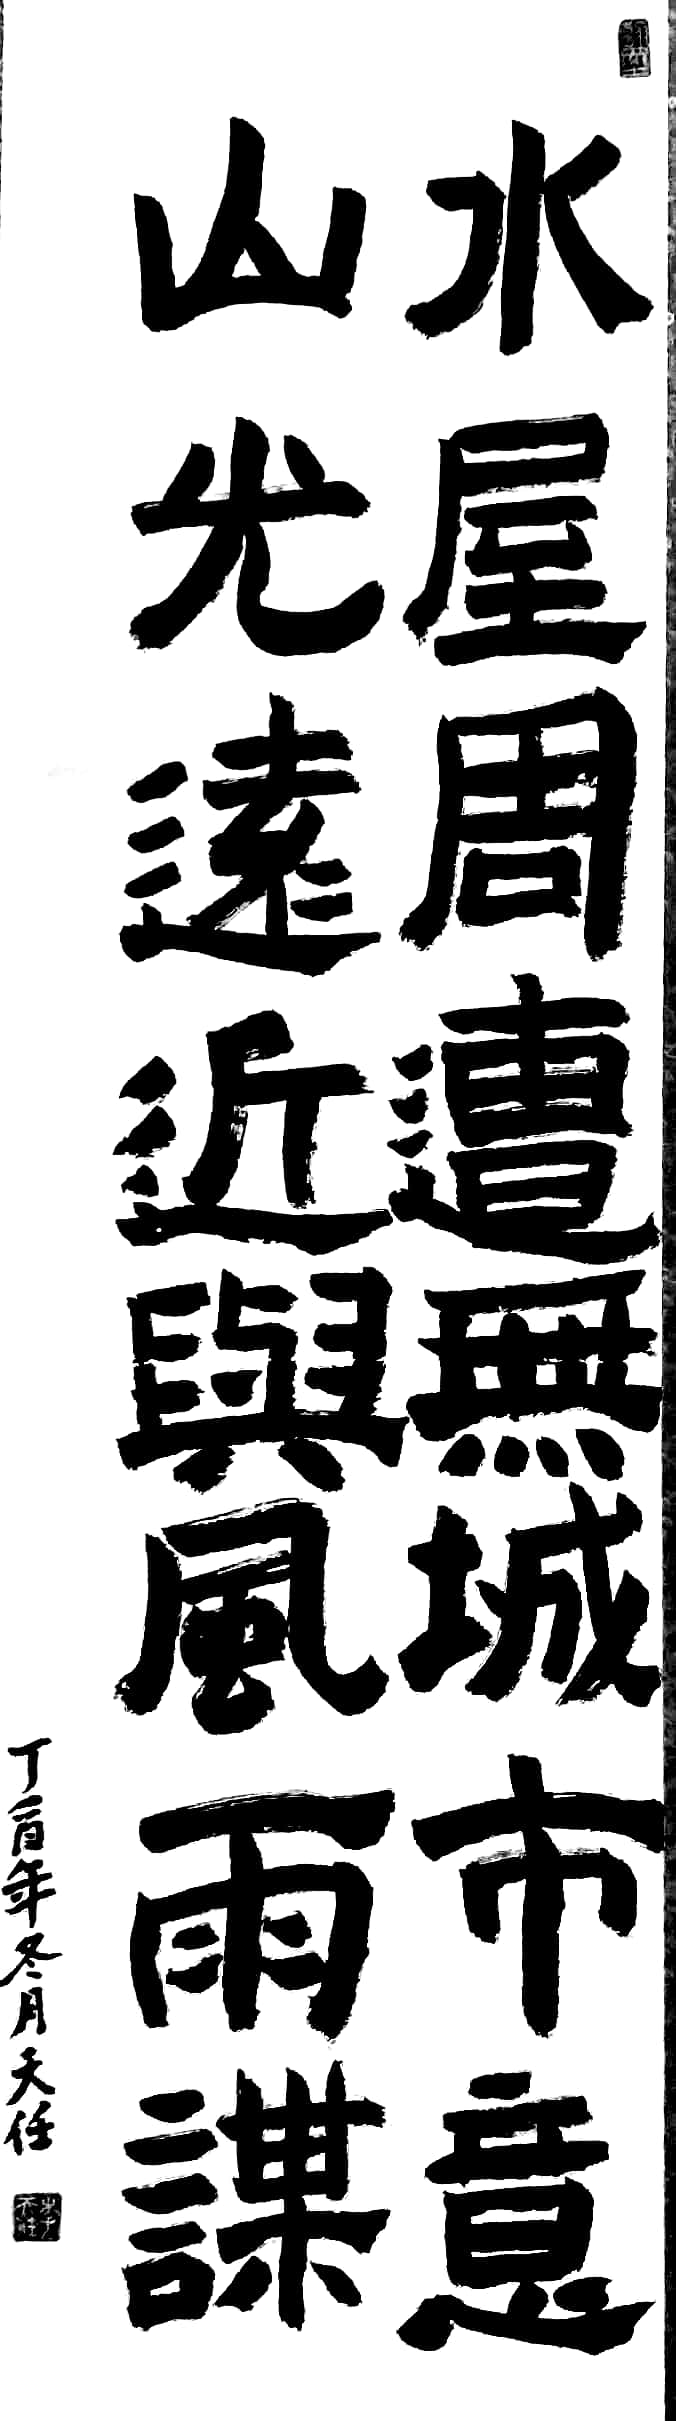 水屋周遭無城市意
山光遠近與風雨謀
丁酉年冬月天任